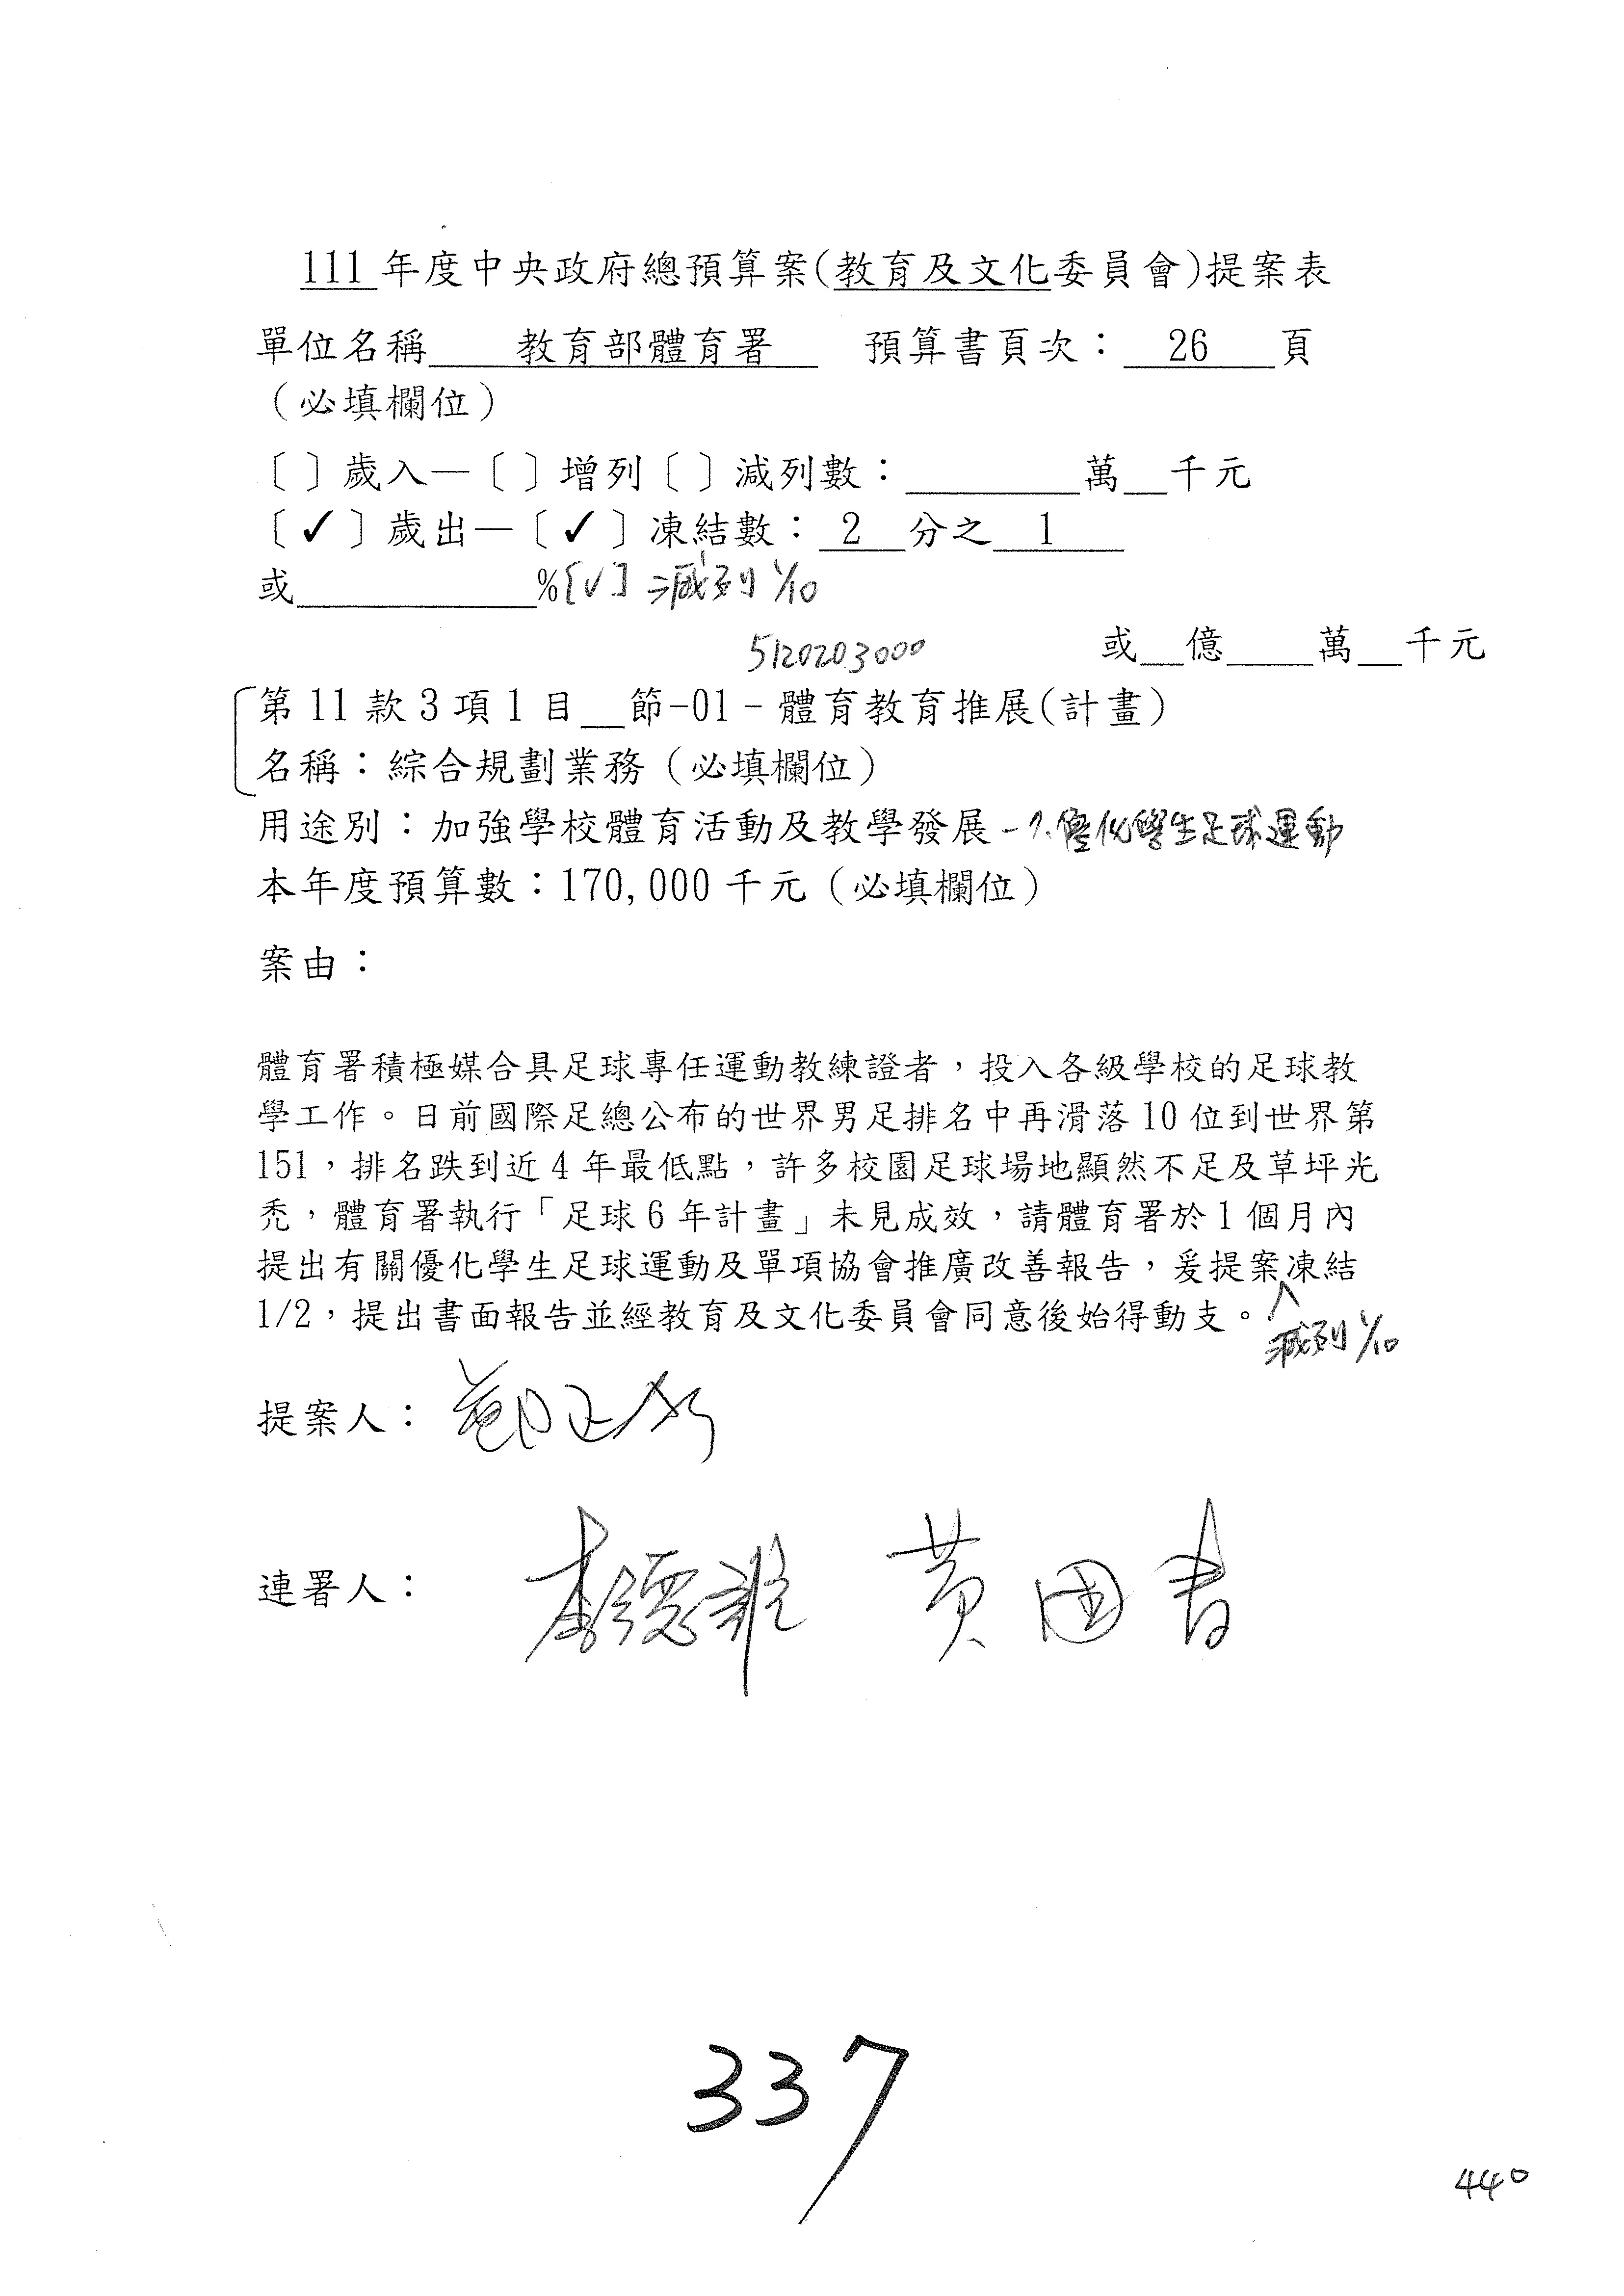 111年度中央政府總預算案(教育及文化委員會)提案表
單位名稱 教育部體育署 預算書頁次：26頁
（必填欄位）
〔〕歲入—〔〕增列〔〕減列數：________萬__千元
〔✓〕歲出—〔✓〕凍結數：2分之1
或__________%[✓]減列1/10
5120203000 或__億____萬__千元
第11款3項1目__節-01-體育教育推展(計畫)
名稱：綜合規劃業務（必填欄位）
用途別：加強學校體育活動及教學發展-7.優化學生足球運動
本年度預算數：170,000千元（必填欄位）
案由：
體育署積極媒合具足球專任運動教練證者，投入各級學校的足球教
學工作。日前國際足總公布的世界男足排名中再滑落10位到世界第
151，排名跌到近4年最低點，許多校園足球場地顯然不足及草坪光
禿，體育署執行「足球6年計畫」未見成效，請體育署於1個月內
提出有關優化學生足球運動及單項協會推廣改善報告，爰提案凍結
1/2，提出書面報告並經教育及文化委員會同意後始得動支。
減列1/10
提案人：
連署人：李德維 黃國書
337
440